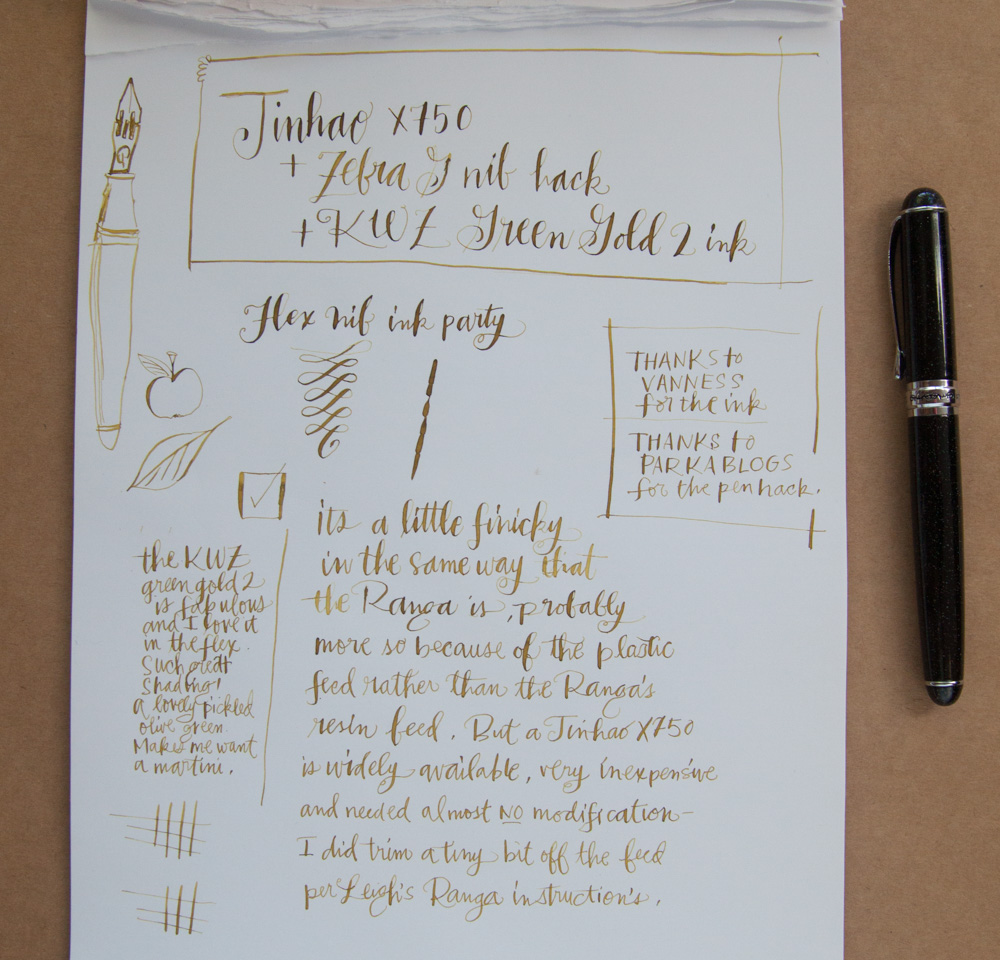 Jinhao X750
+ Zebra G nib hack
+ KWZ Green Gold 2 ink
Flex nib ink party
THANKS to
VANNESS
for the ink
THANKS to
PARKABLOGS
for the pen hack.
its a little finicky
in the same way that
the Ranga is, probably
more so because of the plastic
feed rather than the Ranga's
resin feed. But a Jinhao X750
is widely available, very inexpensive
and needed almost NO modification-
I did trim a tiny bit off the feed
per Leigh's Ranga instruction's.
the KWZ
green gold 2
is fabulous
and I love it
in the flex.
Such great
shading!
a lovely pickled
olive green.
Makes me want
a martini.